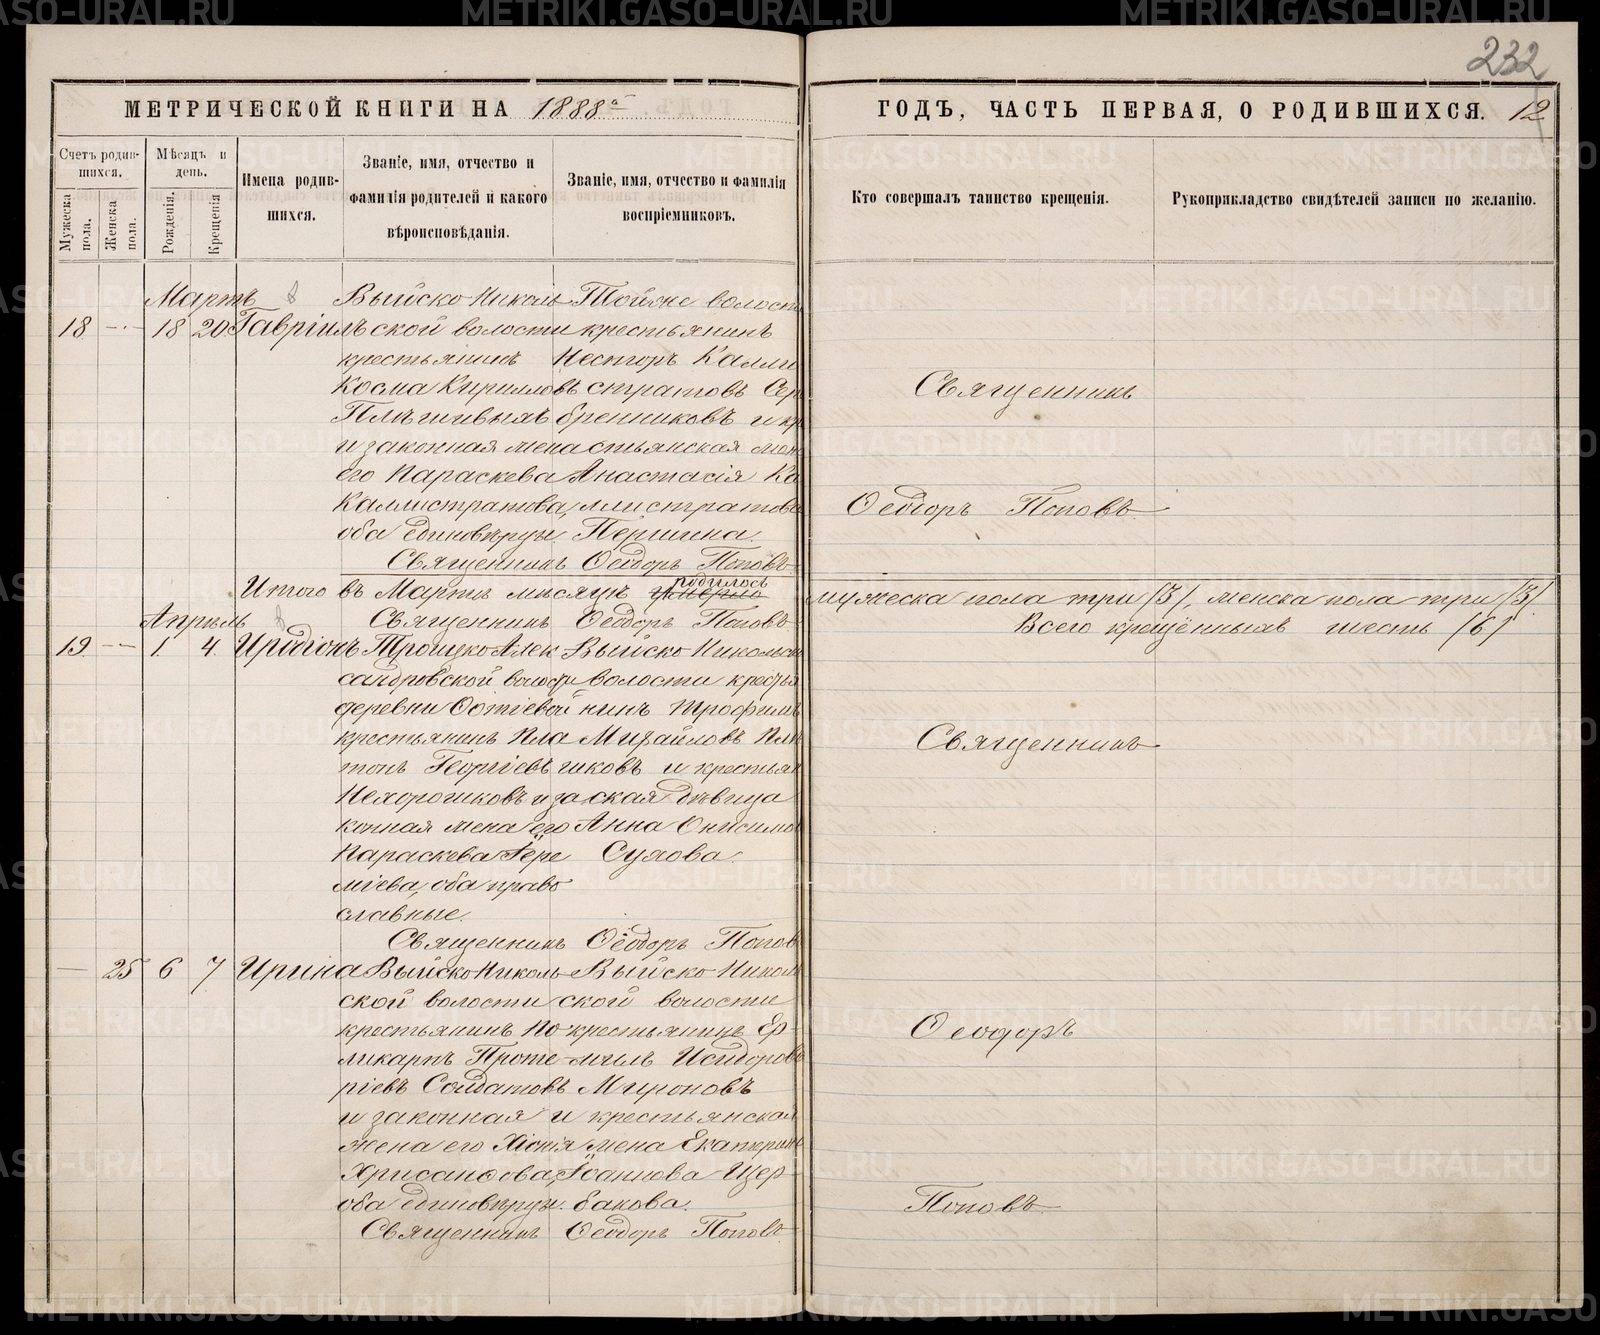 232
МЕТРИЧЕСКОЙ КНИГИ НА 1888 а
ГОДЪ, ЧАСТЬ ПЕРВАЯ, О РОДИВШИХСЯ. 12
Счетъ родив-
шихся.
Мужеска пола.
Женска пола.
Мѣсяцъ и день.
Рожденія.
Крещенія
Имена родив-
шихся.
Званіе, имя, отчество и
фамилія родителей и какого
вѣроисповѣданія.
Званіе, имя, отчество и фамилія
воспріемниковъ.
Кто совершалъ таинство крещенія.
Рукоприкладство свидѣтелей записи по желанію.
Мартъ
18 18 20 Гавріилъ
Выйско Николь
ской волости
крестьянинъ
Косма Кирилловъ
Плѣшивыхъ
и законная жена
его Параскева
Каллистратова,
оба единовѣрцы
волости
крестьянинъ
Несторъ Калли
стратовъ Сер
бренниковъ и кр
стьянская жон
Анастасія Ка
ллистратова
Першина.
Священникъ Ѳеодоръ Поповъ
Священникъ
Ѳеодоръ Поповъ
Итого въ Мартѣ мѣсяцѣ родилось мужеска пола три (3), женска пола три (3)
Священникъ Ѳеодоръ Поповъ
Всего крещёныхъ шесть (6)
Апрѣль
19 1 4 Иродіонъ
Троицко Алек
сандровской волости
деревни
крестьянинъ Пла
тонъ Георгіевъ
Нехорошковъ и за
конная жена его
Параскева Іере
міева, оба право
славные.
Выйско Никольск
волости крестья
нинъ Трофимъ
Михайловъ Пле
шковъ и крестьян
ская дѣвица
Анна Онисимов
Сухова.
Священникъ Ѳеодоръ Попов
Священникъ
25 6 7 Ирина
Выйско Николь
ской волости
крестьянинъ По
ликарпъ Проте
ріевъ Солдатовъ
и законная
жена его Хіонія
Хрисанѳова,
оба единовѣрцы.
Выйско Николь
ской волости
крестьянинъ Ер
милъ Исидоровъ
Мироновъ
и крестьянская
жена Екатерина
Іоаннова Щер
бакова.
Священникъ Ѳеодоръ Поповъ
Ѳеодоръ
Поповъ
METRIKI.GASO-URAL.RU